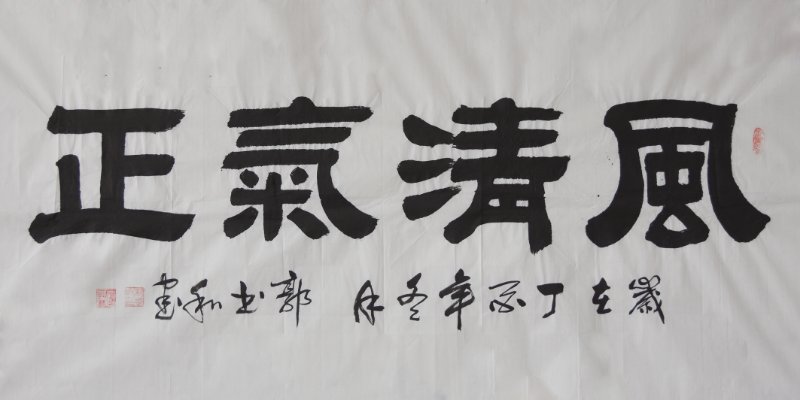 風清氣正
歲在丁酉年冬月 郭书和